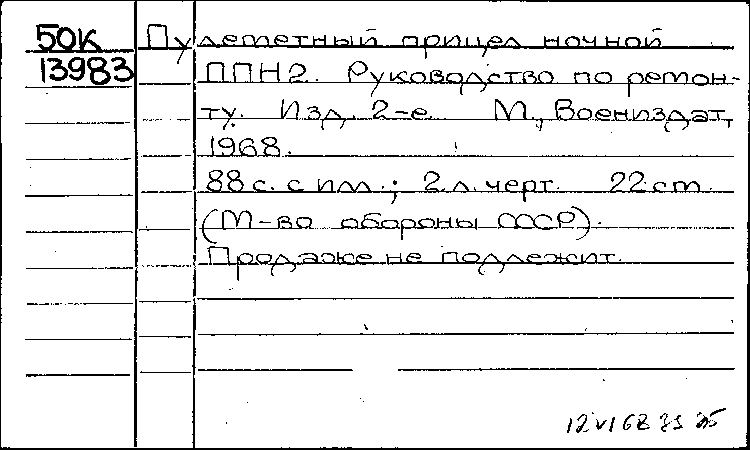 50К Пулеметный прицел ночной
13983 ППН2. Руководство по ремон-
ту. Изд. 2-е. М., Воениздат,
1968.
88 с. с ил.; 2 л. черт. 22 см.
(М-во обороны СССР).
Продаже не подлежит.
12 VI 68